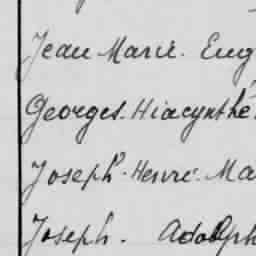 Jean Marie. Eug
Georges. Hiacynthe
Joseph. Henri. Ma
Joseph. Adolph